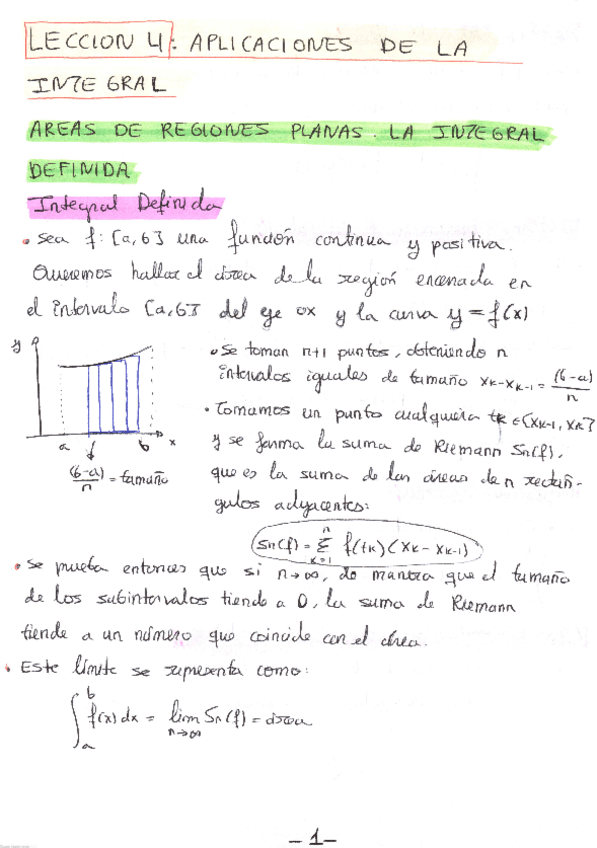 LECCION 4: APLICACIONES DE LA
INTEGRAL
AREAS DE REGIONES PLANAS. LA INTEGRAL
DEFINIDA
Integral Definida
• Sea f: [a,b] una función continua y positiva.
Queremos hallar el área de la región encerrada en
el intervalo [a,b] del eje OX y la curva y = f(x)
y
a b x
(b-a)/n = tamaño
• Se toman n+1 puntos, obteniendo n
intervalos iguales de tamaño xk-xk-1 = (b-a)/n
• Tomamos un punto cualquiera tk ∈ [xk-1, xk]
y se forma la suma de Riemann Sn(f),
que es la suma de las áreas de n rectán-
gulos adyacentes:
Sn(f) = Σ_{k=1}^{n} f(tk)(xk - xk-1)
• Se prueba entonces que si n→∞, de manera que el tamaño
de los subintervalos tiende a 0, la suma de Riemann
tiende a un número que coincide con el área.
• Este límite se representa como:
∫_a^b f(x) dx = lim_{n→∞} Sn(f) = área
- 1 -